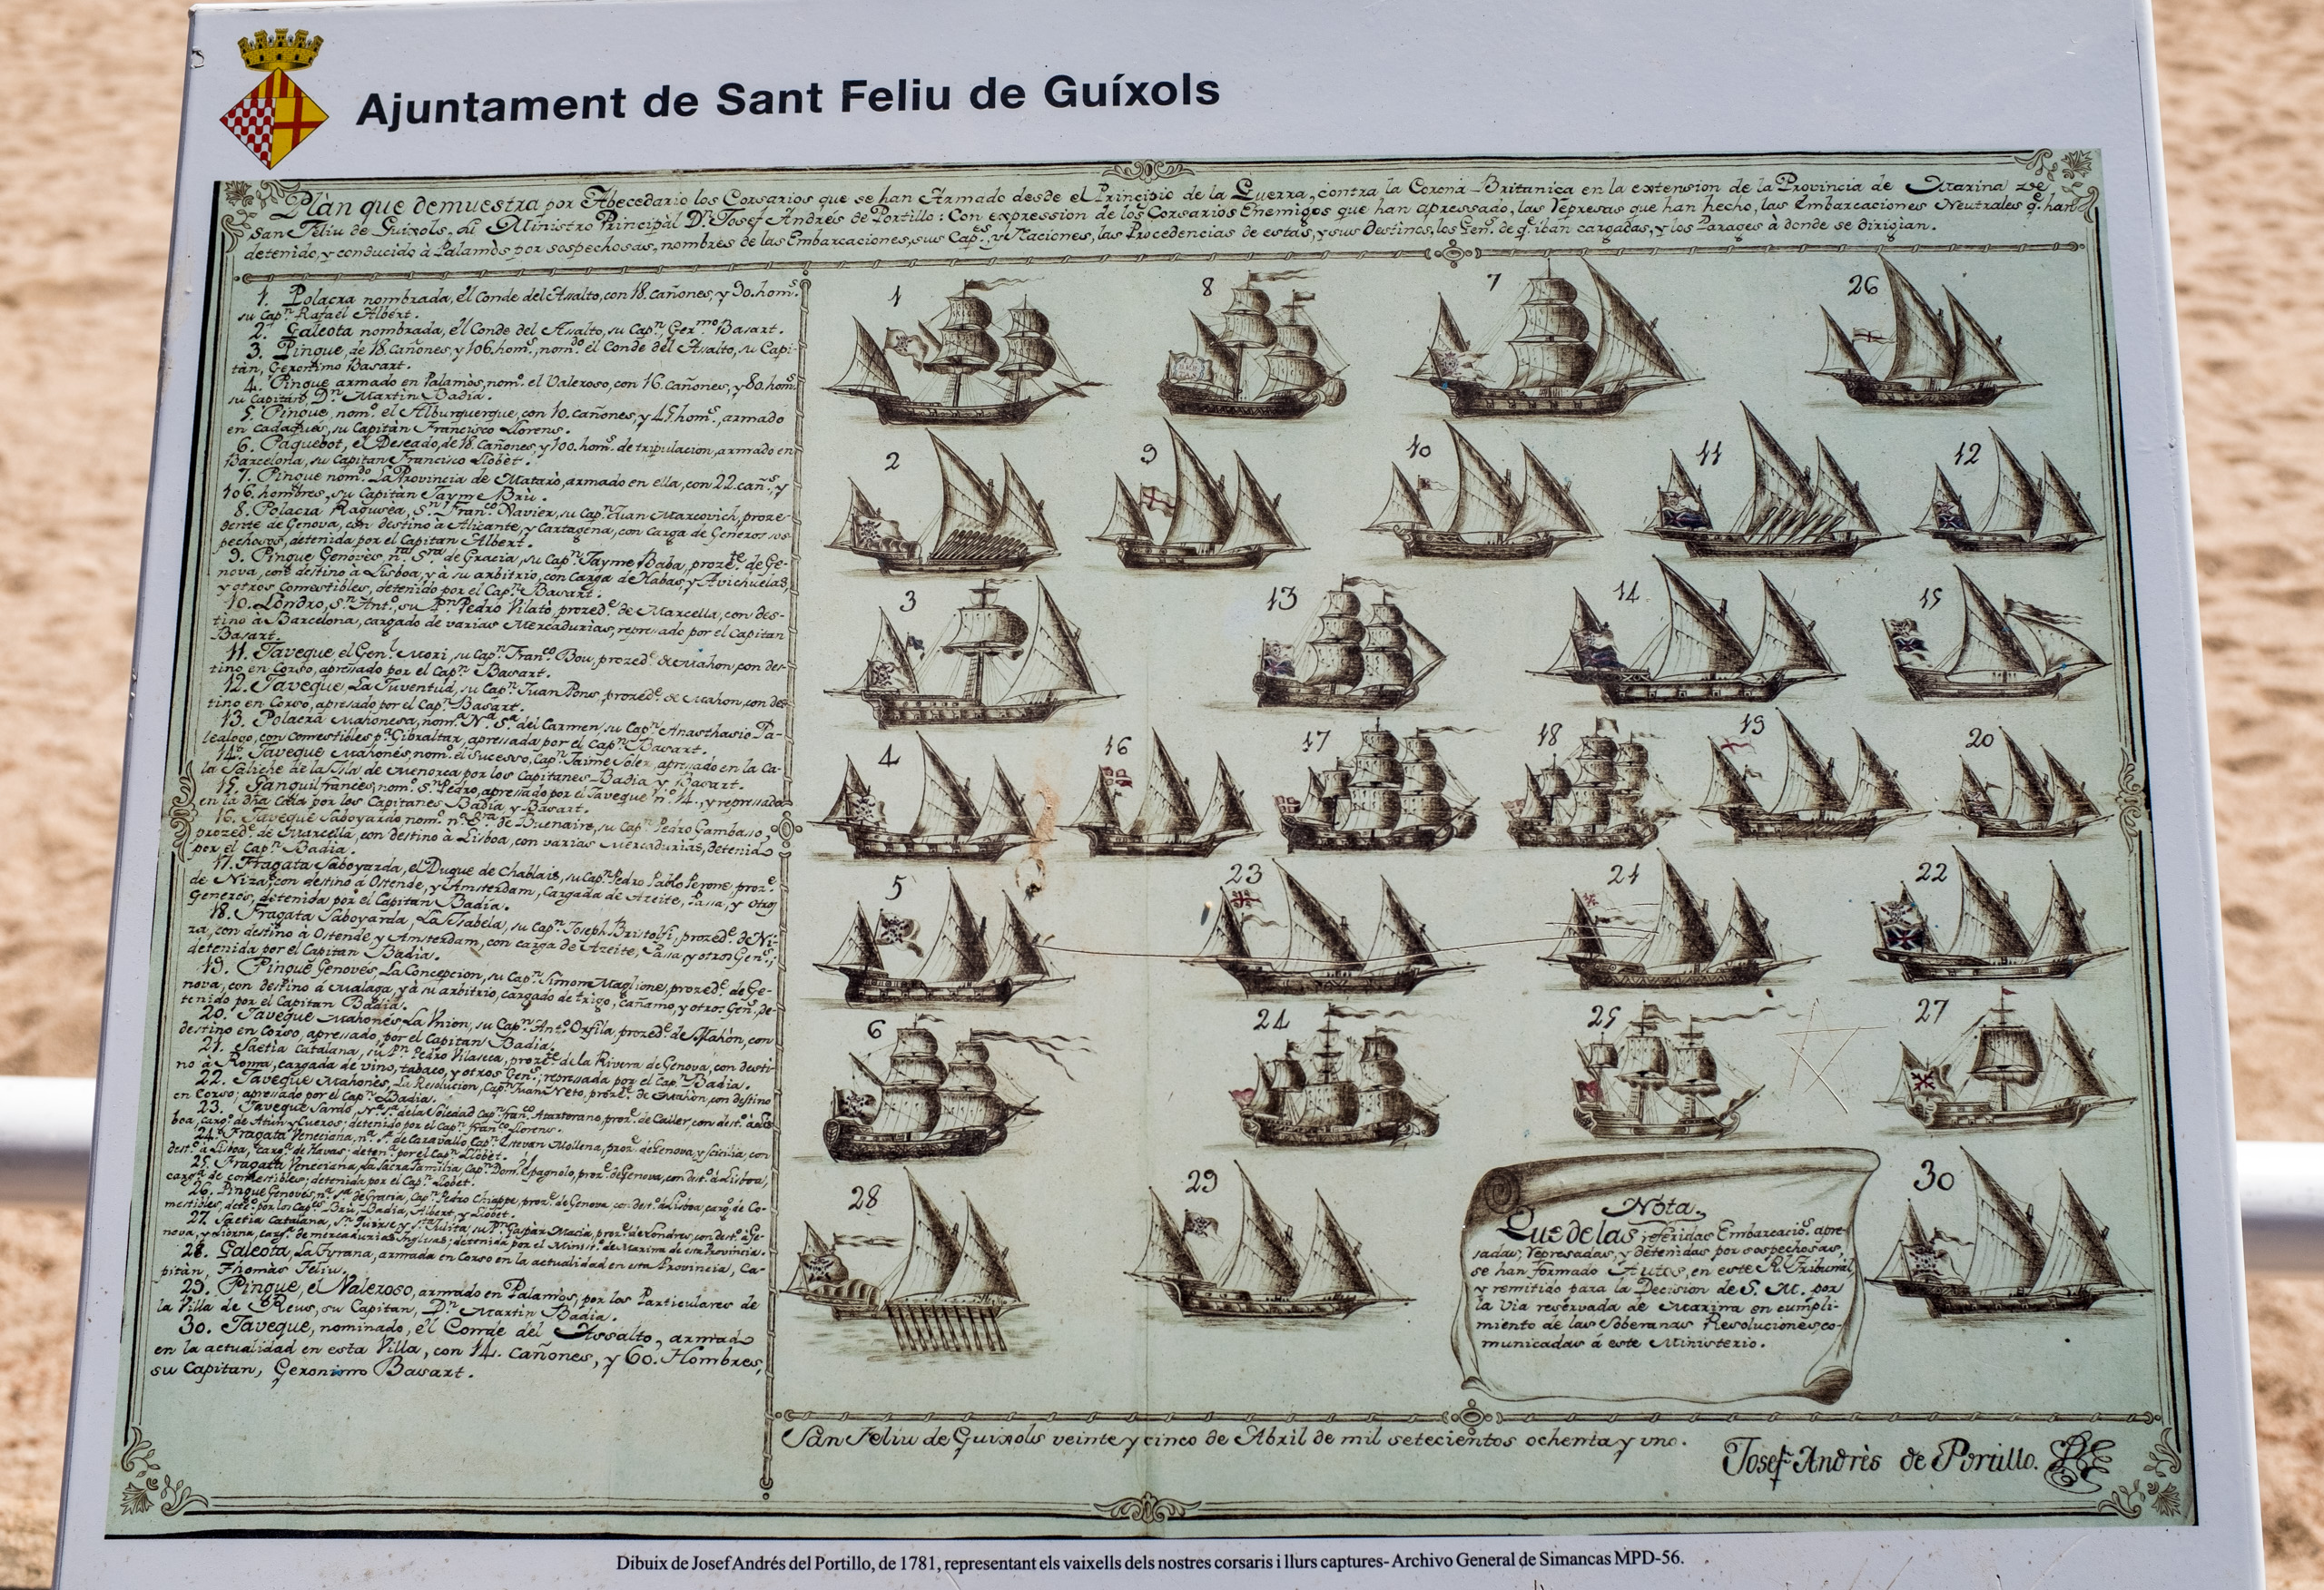 Ajuntament de Sant Feliu de Guíxols
Plàn que demuestra por Abecedario los Corsarios que se han Armado desde el Principio de la Guerra, contra la Corona Britanica en la extension de la Provincia de Marina de
San Feliu de Guixols, su Ministro Principàl Dn. Josef Andrés de Portillo: Con expression de los Corsarios Enemigos que han apressado, las Represas que han hecho, las Embarcaciones Neutrales q.e han
detenido, y conducido à Palamòs por sospechosas, nombres de las Embarcaciones, sus Cap.es, y Naciones, las Procedencias de estas, y sus Destinos, los Gen.s de q.e iban cargadas, y los Parages à donde se dirigian.
1. Polacra nombrada, el Conde del Assalto, con 18. cañones, y 90. hom.s
su Cap.n Rafael Albert.
2. Galeota nombrada, el Conde del Assalto, su Cap.n Ger.mo Basart.
3. Pingue, de 18. cañones, y 106. hom.s, nom.do el Conde del Assalto, su Capi-
tàn, Geronimo Basart.
4. Pingue armado en Palamòs, nom.o el Valeroso, con 16. cañones, y 80. hom.s
su Capitàn, D.n Martin Badia.
5. Pingue, nom.o el Alburquerque, con 10. cañones, y 45. hom.s, armado
en Cadaques, su Capitàn Francisco Llorens.
6. Paquebot, el Deseado, de 18. Cañones, y 100. hom.s de tripulacion, armado en
Barcelona, su Capitan Francisco Llobet.
7. Pingue nom.do La Provincia de Mataró, armado en ella, con 22. cañ.s, y
106. hombres, su Capitàn Jayme Brù.
8. Polacra Ragusea, S.n Fran.co Xavier, su Cap.n Juan Marcovich, proze-
dente de Genova, con destino à Alicante, y Cartagena, con Carga de Generos sos-
pechosos, detenida por el Capitan Albert.
9. Pingue Genovès n.ra S.ra de Gracia, su Cap.n Jayme Baba, proz.te de Ge-
nova, con destino à Lisboa, y à su arbitrio, con Carga de Habas, y Avichuelas,
y otros Comestibles, detenido por el Cap.n Basart.
10. Londro, S.n Ant.o, su P.n Pedro Vilatò prozed.e de Marcella, con des-
tino à Barcelona, cargado de varias Mercadurias, represado por el Capitan
Basart.
11. Javeque, el Gen.l Mori, su Cap.n Fran.co Bou, prozed.e de Mahon, con des-
tino en Corso, apresado por el Cap.n Basart.
12. Javeque, La Juventud, su Cap.n Juan Pons, prozed.e de Mahon, con des-
tino en Corso, apresado por el Cap.n Basart.
13. Polacra Mahonesa, nom.a N.a S.a del Carmen, su Cap.n Anasthasio Pa-
lealogo, con comestibles p.a Gibraltar, apressada por el Cap.n Basart.
14. Javeque Mahonés, nom.o el Sucesso, Cap.n Jaime Soler, apresado en la Ca-
la Saliche de la Isla de Menorca por los Capitanes Badia y Basart.
15. Tanquil frances, nom.o S.n Pedro, apresado por el Javeque n.o 14., y represado
en la dha Cala por los Capitanes Badia y Basart.
16. Javeque Saboyardo nom.o n.a S.ra de Buenaire, su Cap.n Pedro Gambasso,
prozed.e de Marcella, con destino à Lisboa, con varias Mercadurias, detenido
por el Cap.n Badia.
17. Fragata Saboyarda, el Duque de Chablais, su Cap.n Pedro Pablo Perone, proz.e
de Niza, con destino à Ostende, y Amsterdam, Cargada de Azeite, Passa, y otros
Generos, detenida por el Capitan Badia.
18. Fragata Saboyarda, La Isabela, su Cap.n Joseph Bristolfi, prozed.e de Ni-
za, con destino à Ostende y Amsterdam, con carga de Azeite, Passa, y otros Gen.s,
detenida por el Capitan Badia.
19. Pingue Genovés, La Concepcion, su Cap.n Simon Magliones, prozed.e de Ge-
nova, con destino à Malaga, y à su arbitrio, cargado de trigo, cañamo, y otros Gen.s, de-
tenido por el Capitan Badia.
20. Javeque Mahonés La Vnion, su Cap.n Ant.o Orfila prozed.e de Mahòn, con
destino en Corso, apresado, por el Capitan Badia.
21. Saetia Catalana, su P.n Pedro Vilaseca, proz.te de la Rivera de Genova, con desti-
no à Roma, cargada de vino, tabaco, y otros Gen.s; represada por el Cap.n Badia.
22. Javeque Mahonès, La Resolucion, Cap.n Juan Neto, proz.e de Mahon, con destino
en Corso; apresado por el Cap.n Badia.
23. Javeque Sardo, N.a S.a de la Soledad Cap.n fran.co Atartorano, proz.e de Caller, con dest.o à Lis-
boa, carg.o de Atun y Cueros; detenido por el Cap.n fran.co Llorens.
24. Fragata Veneciana, n.a S.a de Caravallo, Cap.n Estevan Mollena, proz.e de Genova, y Scicilia, con
dest.o à Lisboa, carg.a de Havas; deten.a por el Cap.n Llobet.
25. Fragata Veneciana, La Sacra Familia, Cap.n Dom.o Spagnolo, proz.e de Genova, con dest.o à Lisboa,
carg.a de comestibles; detenida por el Cap.n Llobet.
26. Pingue Genovés, n.a S.a de Gracia, Cap.n Pedro Chiappe, proz.e de Genova, con dest.o à Lisboa, carg.o de Co-
mestibles, dete.o por los Cap.es Brù, Badia, Albert, y Llobet.
27. Saetia Catalana, S.n Quirse y S.ta Julita, su P.n Gaspàr Macià, proz.e de Londres, con dest.o à Ge-
nova, y Liorna, carg.a de mercadurias Inglesas; detenida por el Minist.o de Marina de esta Provincia.
28. Galeota, La Tyrana, armada en Corso en la actualidad en esta Provincia, Ca-
pitàn, Thomàs Feliu.
29. Pingue, el Valeroso, armado en Palamòs, por los Particulares de
la Villa de Reus, su Capitan, D.n Martìn Badia.
30. Javeque, nominado, el Conde del Assalto, armado
en la actualidad en esta Villa, con 14. cañones, y 60. Hombres,
su Capitan, Geronimo Basart.
1 8 7 26
2 9 10 11 12
3 13 14 15
4 16 17 18 19 20
5 23 21 22
6 24 25 27
28 29 30
Nota,
Que de las referidas Embarcacio.s apre-
sadas, Represadas, y detenidas por sospechosas,
se han formado Autos, en este R.l Tribunal,
y remitido para la Decision de S. M. por
la Via reservada de Marina en cumpli-
miento de las Soberanas Resoluciones, co-
municadas á este Ministerio.
San Feliu de Guixols veinte y cinco de Abril de mil setecientos ochenta y uno.
Josef Andrès de Portillo.
Dibuix de Josef Andrés del Portillo, de 1781, representant els vaixells dels nostres corsaris i llurs captures- Archivo General de Simancas MPD-56.